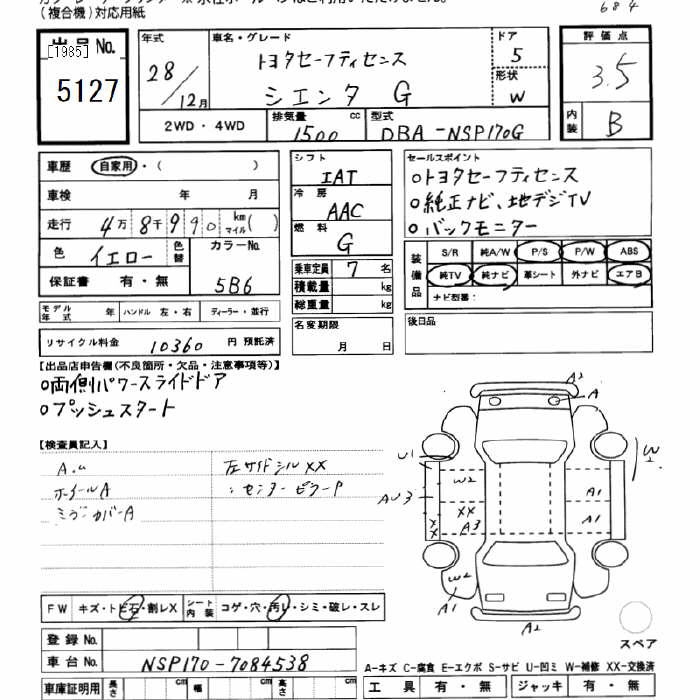 (複合機)対応用紙
684
出品 No.
[1985]
5127
年式
28/12月
車名・グレード
トヨタセーフティセンス
シエンタ G
ドア
5
形状
W
評価点
3.5
内装
B
2WD・4WD
排気量
1500 cc
型式
DBA-NSP170G
車歴
自家用・( )
車検 年 月
走行 4万8千990 km マイル( )
色 イエロー 色替
カラーNo.
5B6
保証書 有・無
モデル年式 年
ハンドル 左・右
ディーラー・並行
リサイクル料金 10360 円 預託済
シフト
IAT
冷房
AAC
燃料
G
乗車定員 7 名
積載量 kg
総重量 kg
名変期限
月 日
セールスポイント
○トヨタセーフティセンス
○純正ナビ、地デジTV
○バックモニター
装備品
S/R 純A/W P/S P/W ABS
純TV 純ナビ 革シート 外ナビ エアB
ナビ型番:
後日品
【出品店申告欄(不良箇所・欠品・注意事項等)】
○両側パワースライドドア
○プッシュスタート
【検査員記入】
A.u
ホイールA
ミラーカバーA
左サイドシルXX
:センターピラーP
FW キズ・トビ石・割レX
シート内装 コゲ・穴・汚レ・シミ・破レ・スレ
登録 No.
車台 No. NSP170-7084538
車庫証明用 長さ cm 幅 cm 高さ cm
A2
A
U1
W2
XX
A3
AU3
XX
W2
A1
A1
A1
W
A2
スペア
A-キズ C-腐食 E-エクボ S-サビ U-凹ミ W-補修 XX-交換済
工具 有・無 ジャッキ 有・無